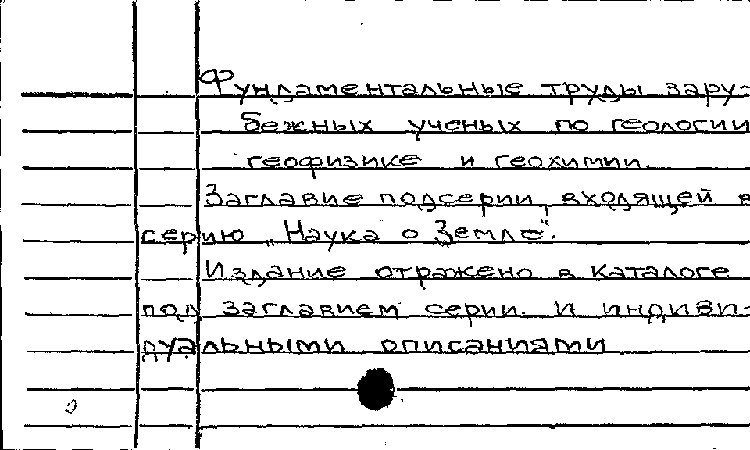 Фундаментальные труды зару-
бежных ученых по геологии
геофизике и геохимии.
Заглавие подсерии, входящей в
серию „Наука о Земле“.
Издание отражено в каталоге
под заглавием серии. и индиви-
дуальными описаниями